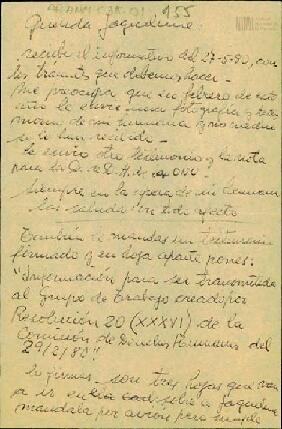 155
Querida Jaqueline:
recibí el informativo del 27-5-80, con
los trámites que debemos hacer.-
Me preocupa que en febrero de este
año le envié una fotografía y testi
monio de mi hermana y no
se lo han recibido.-
Le envío otro testimonio y la nota
para la de
Siempre en la espera de mi hermana
las saluda con todo afecto
También le mandas un testimonio
firmado y en hoja aparte pones:
"Información para ser transmitida
al Grupo de Trabajo creado por
Resolución 20 (XXXVI) de la
Comisión de Derechos Humanos del
29/2/80"
lo firmas - son tres hojas que van
a ir en cada sobre a Jaqueline
mandala por avión pero simple